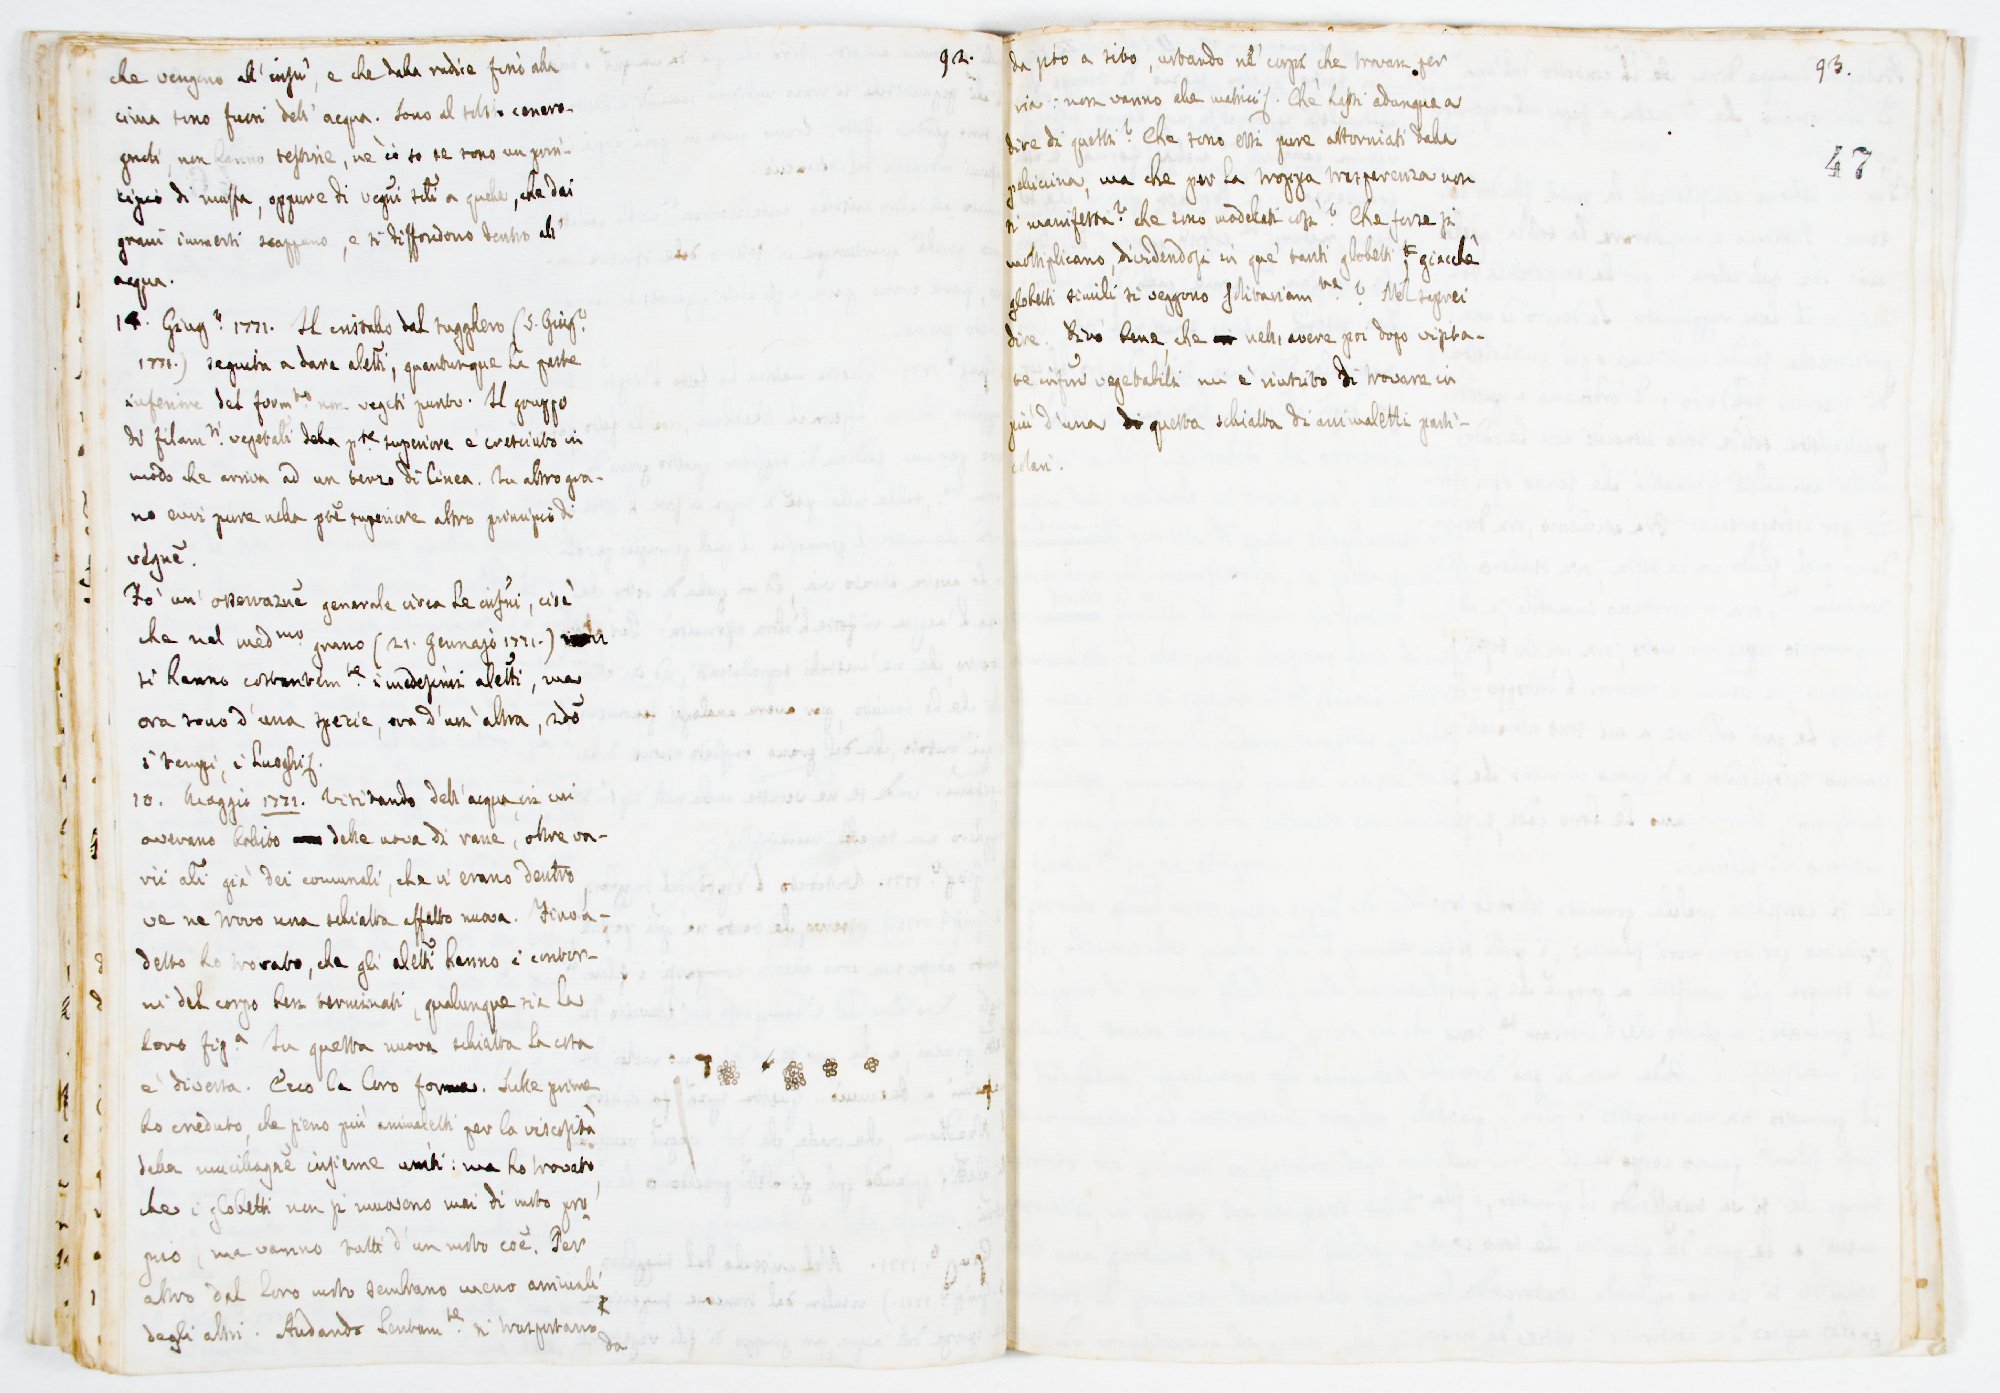 92.
che vengono all'insù, e che dalla radice fino alla
cima sono fuori dell' acqua. Sono al solito cenero-
gnoli, non hanno tessione, nè io so se sono un prin-
cipio di muffa, oppure di vegni simi a quelle, che dai
grani immersi scappano, e si diffondono dentro all'
acqua.
14. Giugo. 1771. Il cristallo dal sugghero (5. Giugo.
1771.) seguita a dare aletti, quantunque la parte
inferiore del formto non vegeti punto. Il gruppo
di filamti vegetali della pte superiore è cresciuto in
modo che arriva ad un terzo di linea. In altro gra-
no evvi pure nella pte superiore altro principio di
vegne.
Fo' un' osservazne generale circa le infni, cioè
che nel medmo grano (21. Gennajo 1771.) non
si hanno costantemte i medesimi aletti, ma
ora sono d'una spezie, ora d'un' altra, sdo
i tempi, i luoghi.
10. Maggio 1771. Visitando dell'acqua, in cui
avevano bollito delle uova di rane, oltre va-
rii alti già dei comunali, che vi erano dentro,
ve ne trovo una schiatta affatto nuova. Fino a-
desso ho trovato, che gli aletti hanno i contor-
ni del corpo ben terminati, qualunque sia la
loro figa. In questa nuova schiatta la cosa
è diversa. Ecco la loro forma. Sulle prime
ho creduto, che sieno più animaletti per la viscosità
della mucilagne insieme uniti: ma ho trovato,
che i globetti non si muovono mai di moto pro
prio, ma vanno tutti d'un moto coe. Per
altro dal loro moto sembrano meno animali
degli altri. Andando lentamte si trasportano
da
93.
47
da sito a sito, urtando ne' corpi che trovan per
via: non vanno alle matrici. Che hassi adunque a
dire di questi? Che sono essi pure attorniati dalla
pellicina, ma che per la troppa trasparenza non
si manifesta? che sono modellati così? Che forse si
moltiplicano, dividendosi in que' tanti globetti, giacchè
globetti simili si veggono solitariamte? Nol saprei
dire. Dirò bene, che nell' avere poi dopo visita-
te infni vegetabili mi è riuscito di trovare in
più d'una di questa schiatta di animaletti parti-
colari.